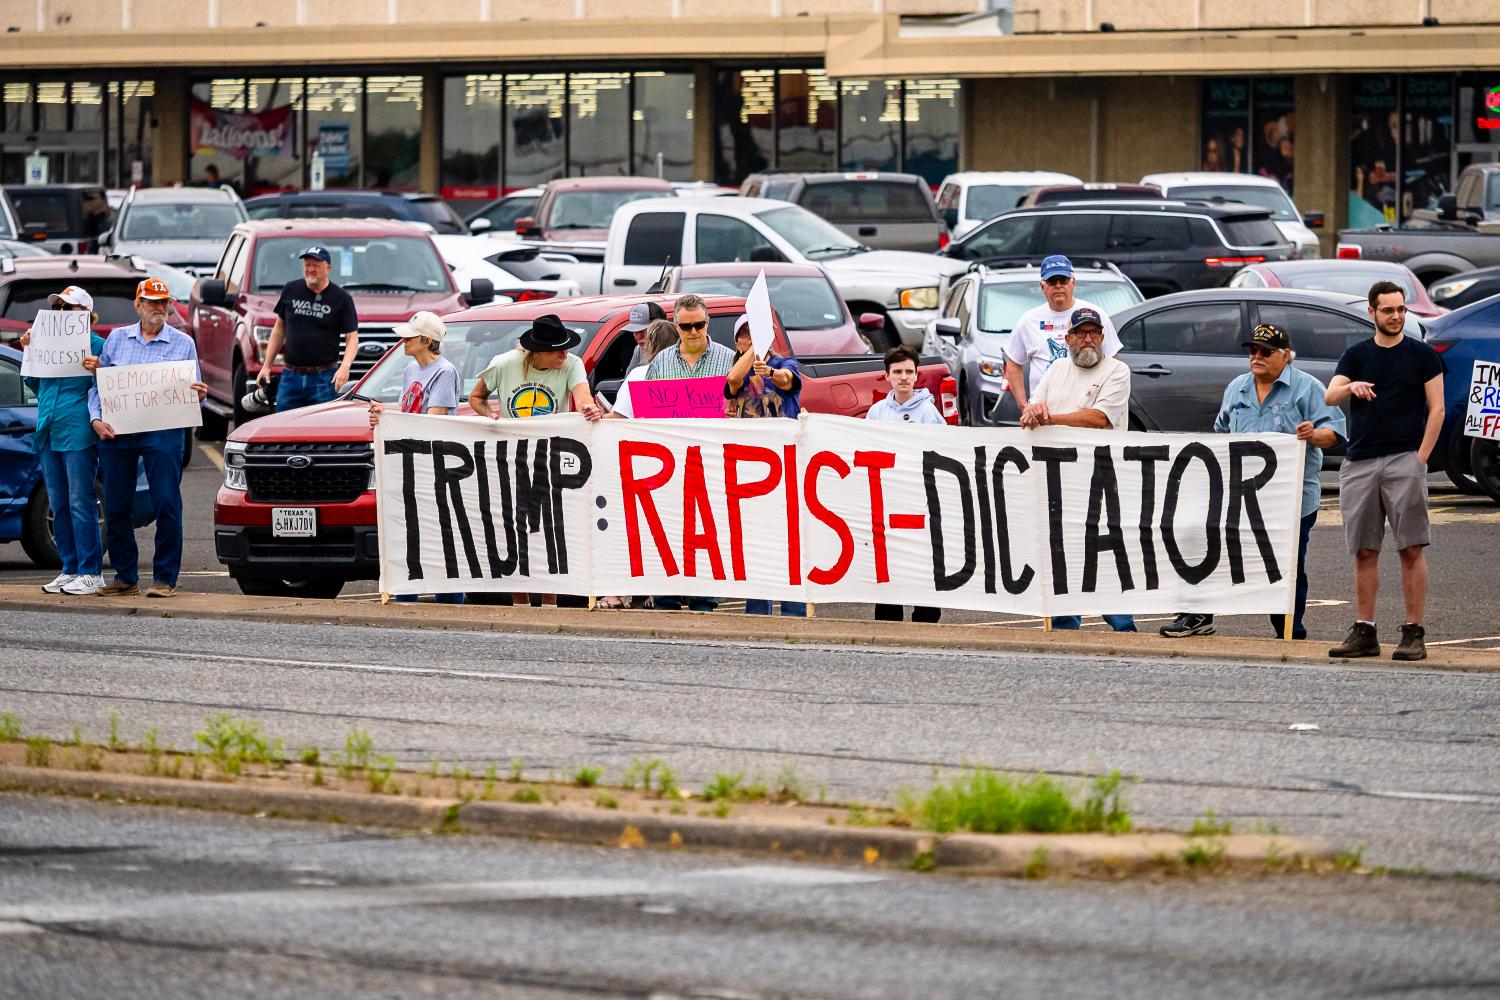 balloons!
Wigs
KINGS!
PROCESS!!
DEMOCRACY
NOT FOR SALE
TX
WACO
INDIE
NO KINGS
TRUMP: RAPIST-DICTATOR
TEXAS
HXJ7DV
IM
& RE
ALL FA